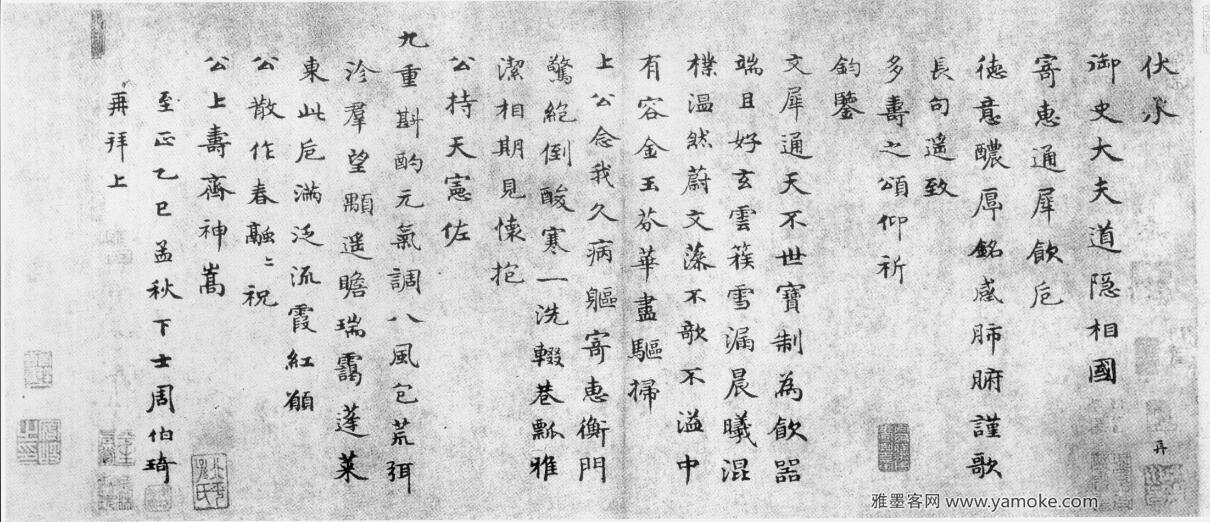 伏承
御史大夫道隐相國
寄惠通犀飲卮
德意醲厚銘感肺腑謹歌
長句遙致
多壽之頌仰祈
鈞鑒
文犀通天不世寶制為飲器
端且好玄雲簇雪漏晨曦混
樸溫然蔚文藻不歌不溢中
有容金玉芬華盡驅掃
上公念我久病軀寄惠衡門
驚絕倒酸寒一洗輟巷瓢雅
潔相期見懷抱
公持天憲佐
九重斟酌元氣調八風包荒弭
沴羣望顒遥瞻瑞靄蓬萊
東此卮滿泛流霞紅願
公散作春融〻祝
公上壽齊神嵩
至正乙巳孟秋下士周伯琦
再拜上
雅墨客网 www.yamoke.com